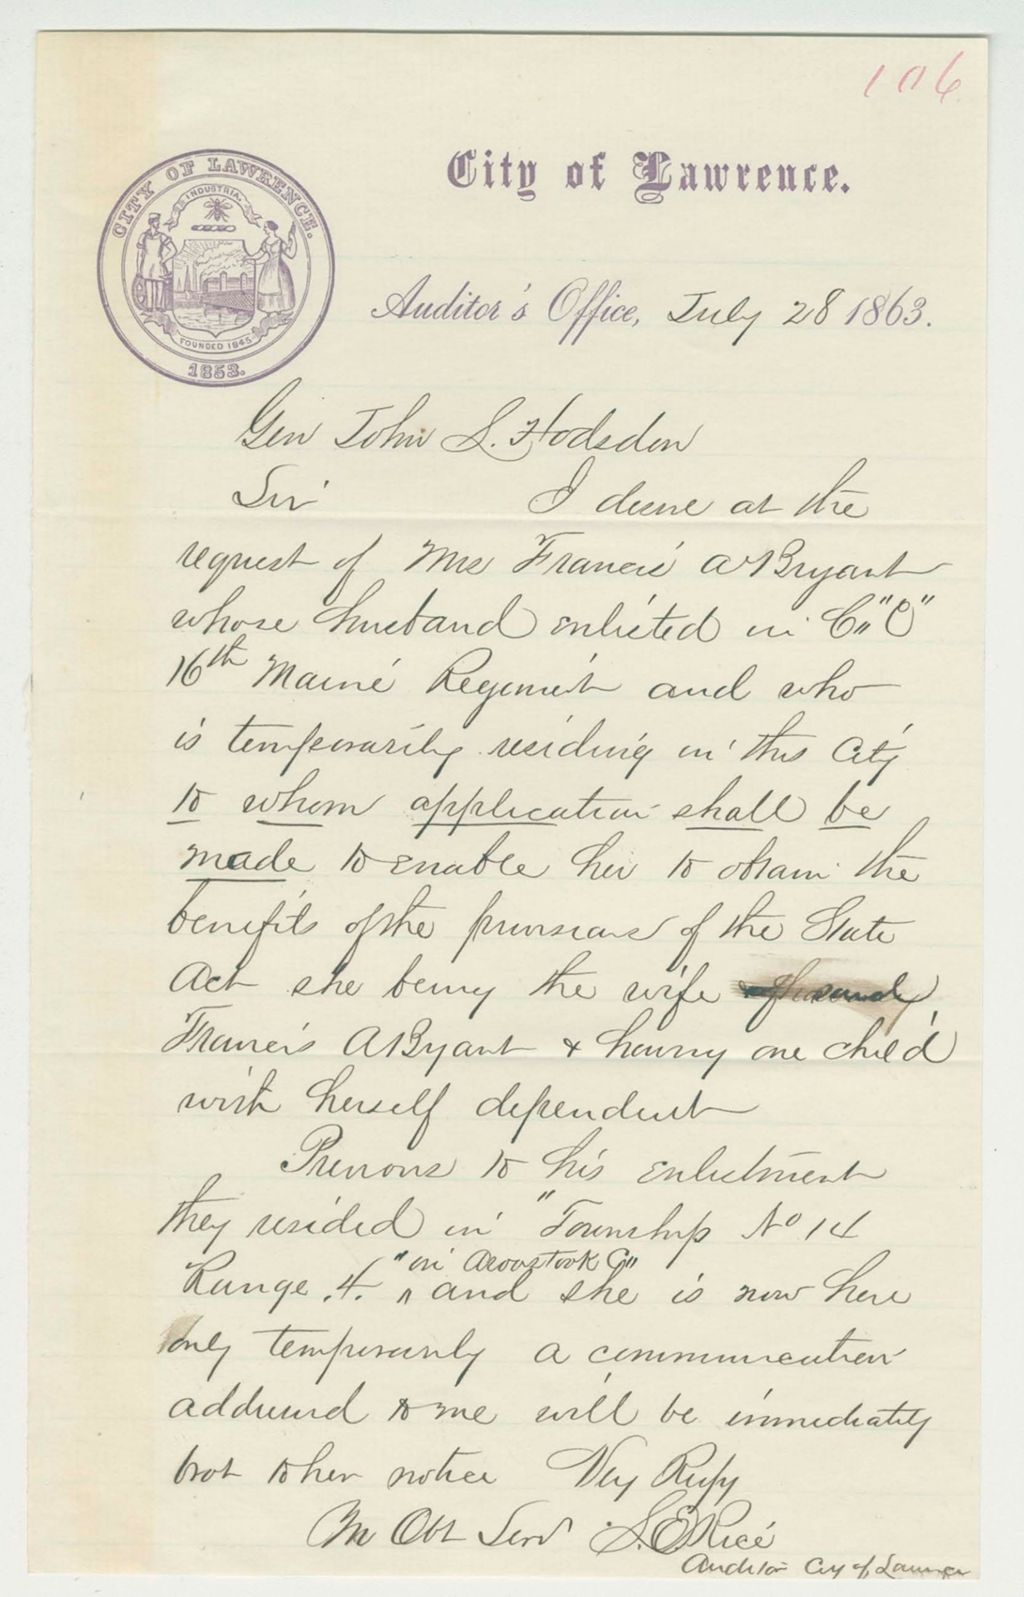 106
City of Lawrence.
CITY OF LAWRENCE.
INDUSTRIA.
FOUNDED 1845
1853.
Auditor's Office, July 28 1863.
Gen John L. Hodsdon
Sir I desire at the
request of Mrs Francis A Bryant
whose husband enlisted in Co "C"
16th Maine Regiment and who
is temporarily residing in this City
to whom application shall be
made to enable her to obtain the
benefits of the provisions of the State
Act she being the wife
Francis A Bryant & having one child
with herself dependent
Previous to his enlistment
they resided in "Township No 14
"in Aroostook Co"
Range .4. and she is now here
only temporarily a communication
addressed to me will be immediately
brot to her notice Very Respy
Obt Servt S. E. Rice
Auditor City of Lawrence